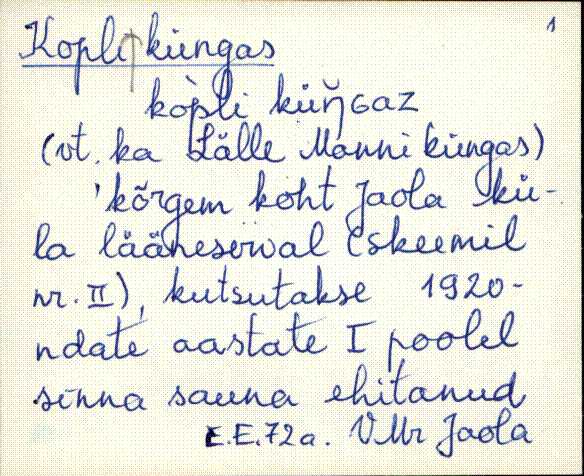 1
Kopli küngas
kò̭pli küŋ̆ɢaz
(vt. ka Lälle Manni küngas)
'kõrgem koht Jaola kü-
la lääneserval (skeemil
nr. II), kutsutakse 1920-
ndate aastate I poolel
sinna sauna ehitanud
E.E. 72 a. VMr Jaola